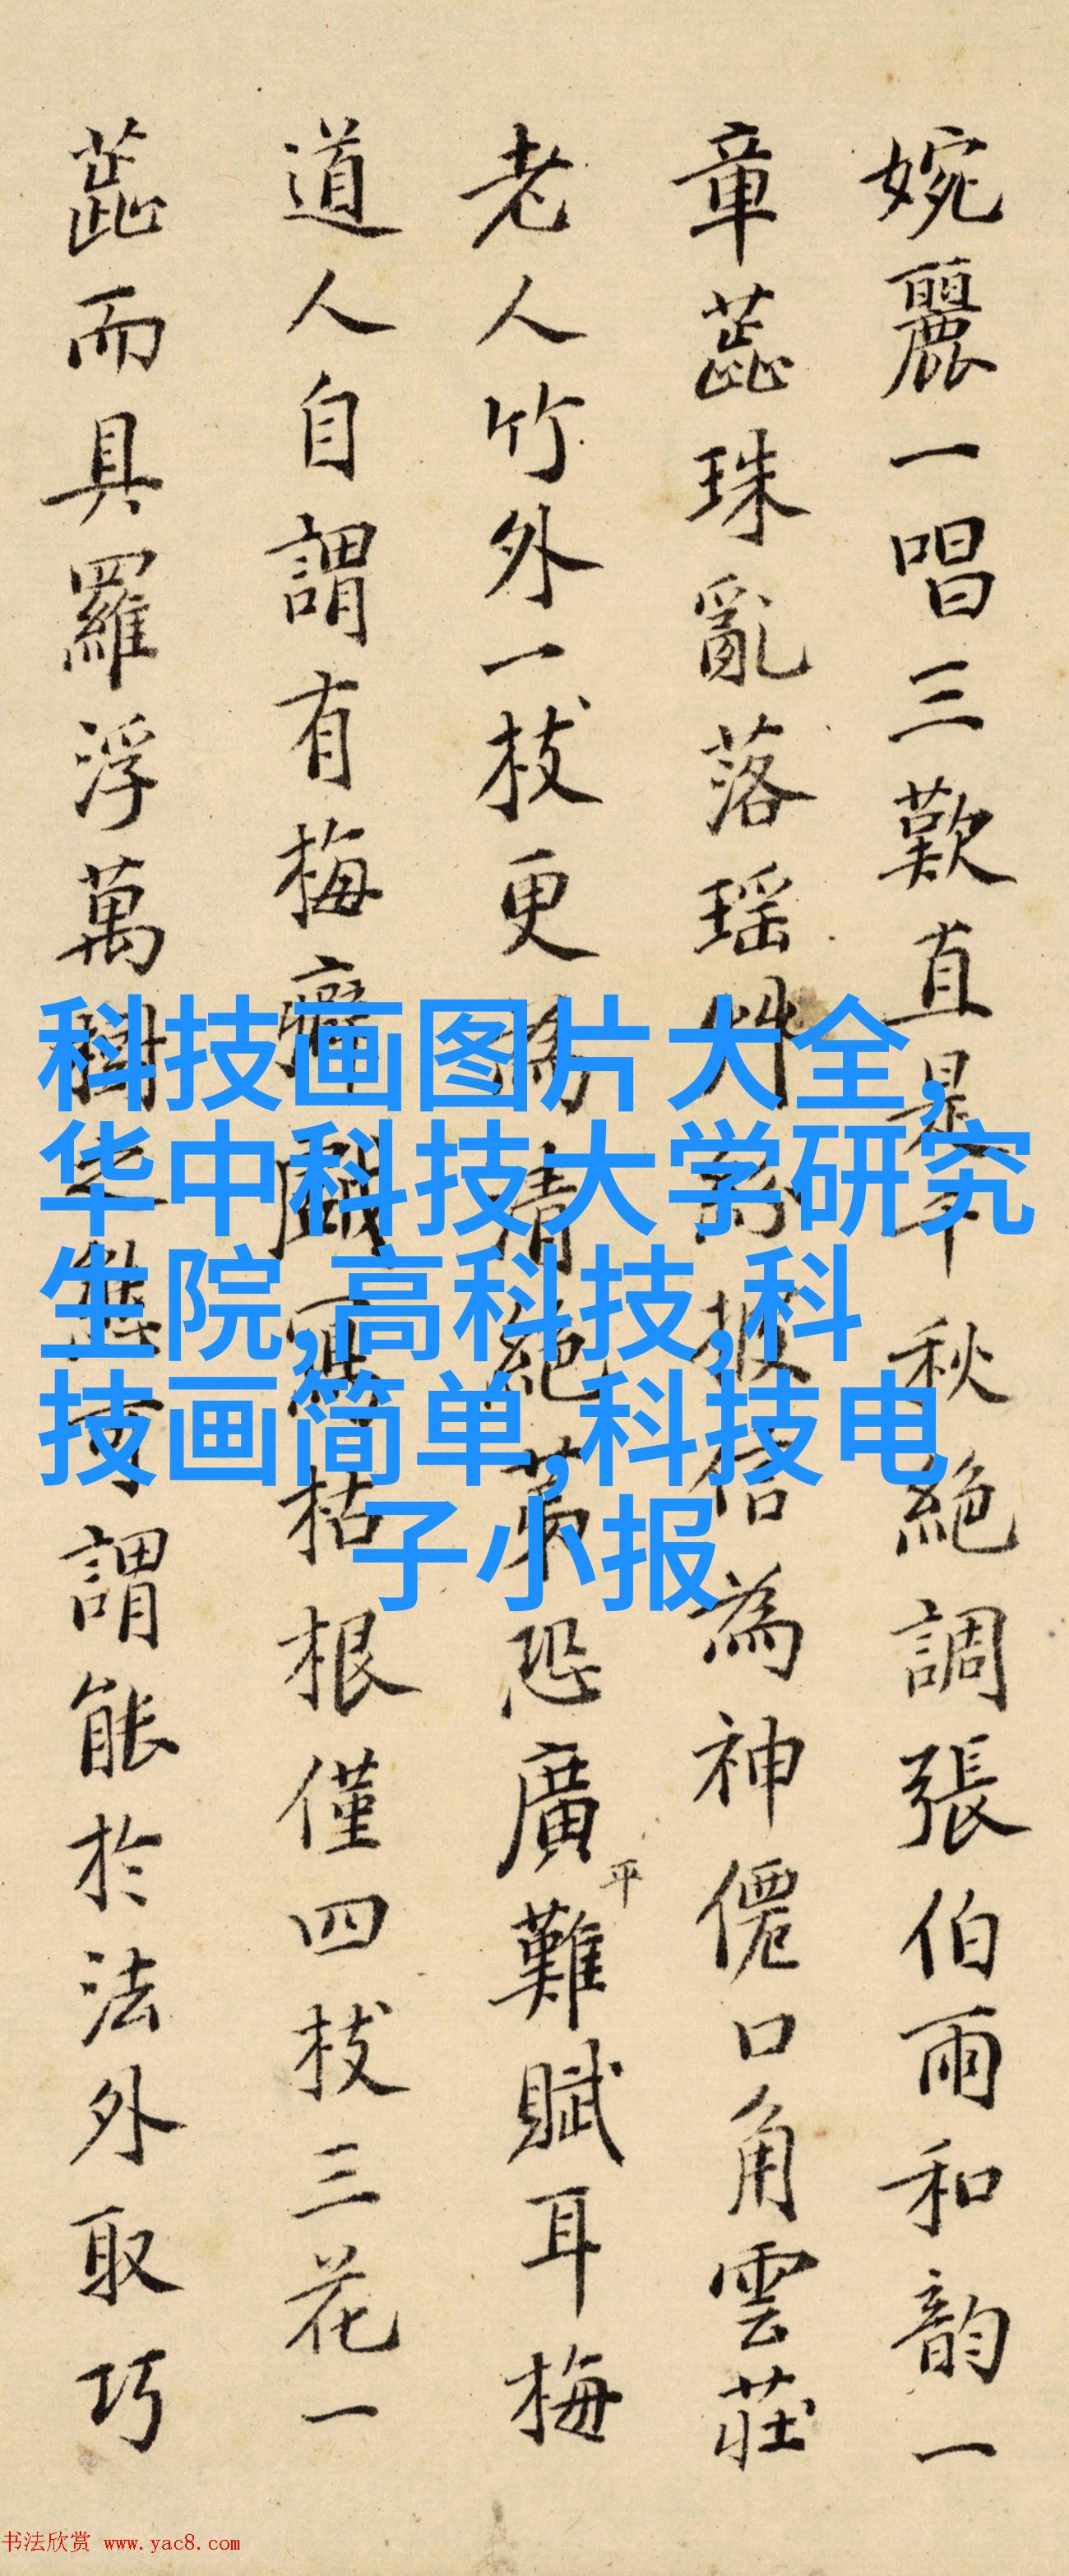 婉麗一唱三歎直是千秋絶調張伯雨和韵一
章蕋珠亂落瑶艸披信為神僊口角雲莊
老人竹外一枝更為清絶苐恐廣平難賦耳梅
道人自謂有梅癖戲寫枯根僅四枝三花一
蕋而具羅浮萬樹之謂能於法外取巧
科技画图片大全,
华中科技大学研究
生院,高科技,科
技画简单,科技电
子小报
书法欣赏 www.yac8.com